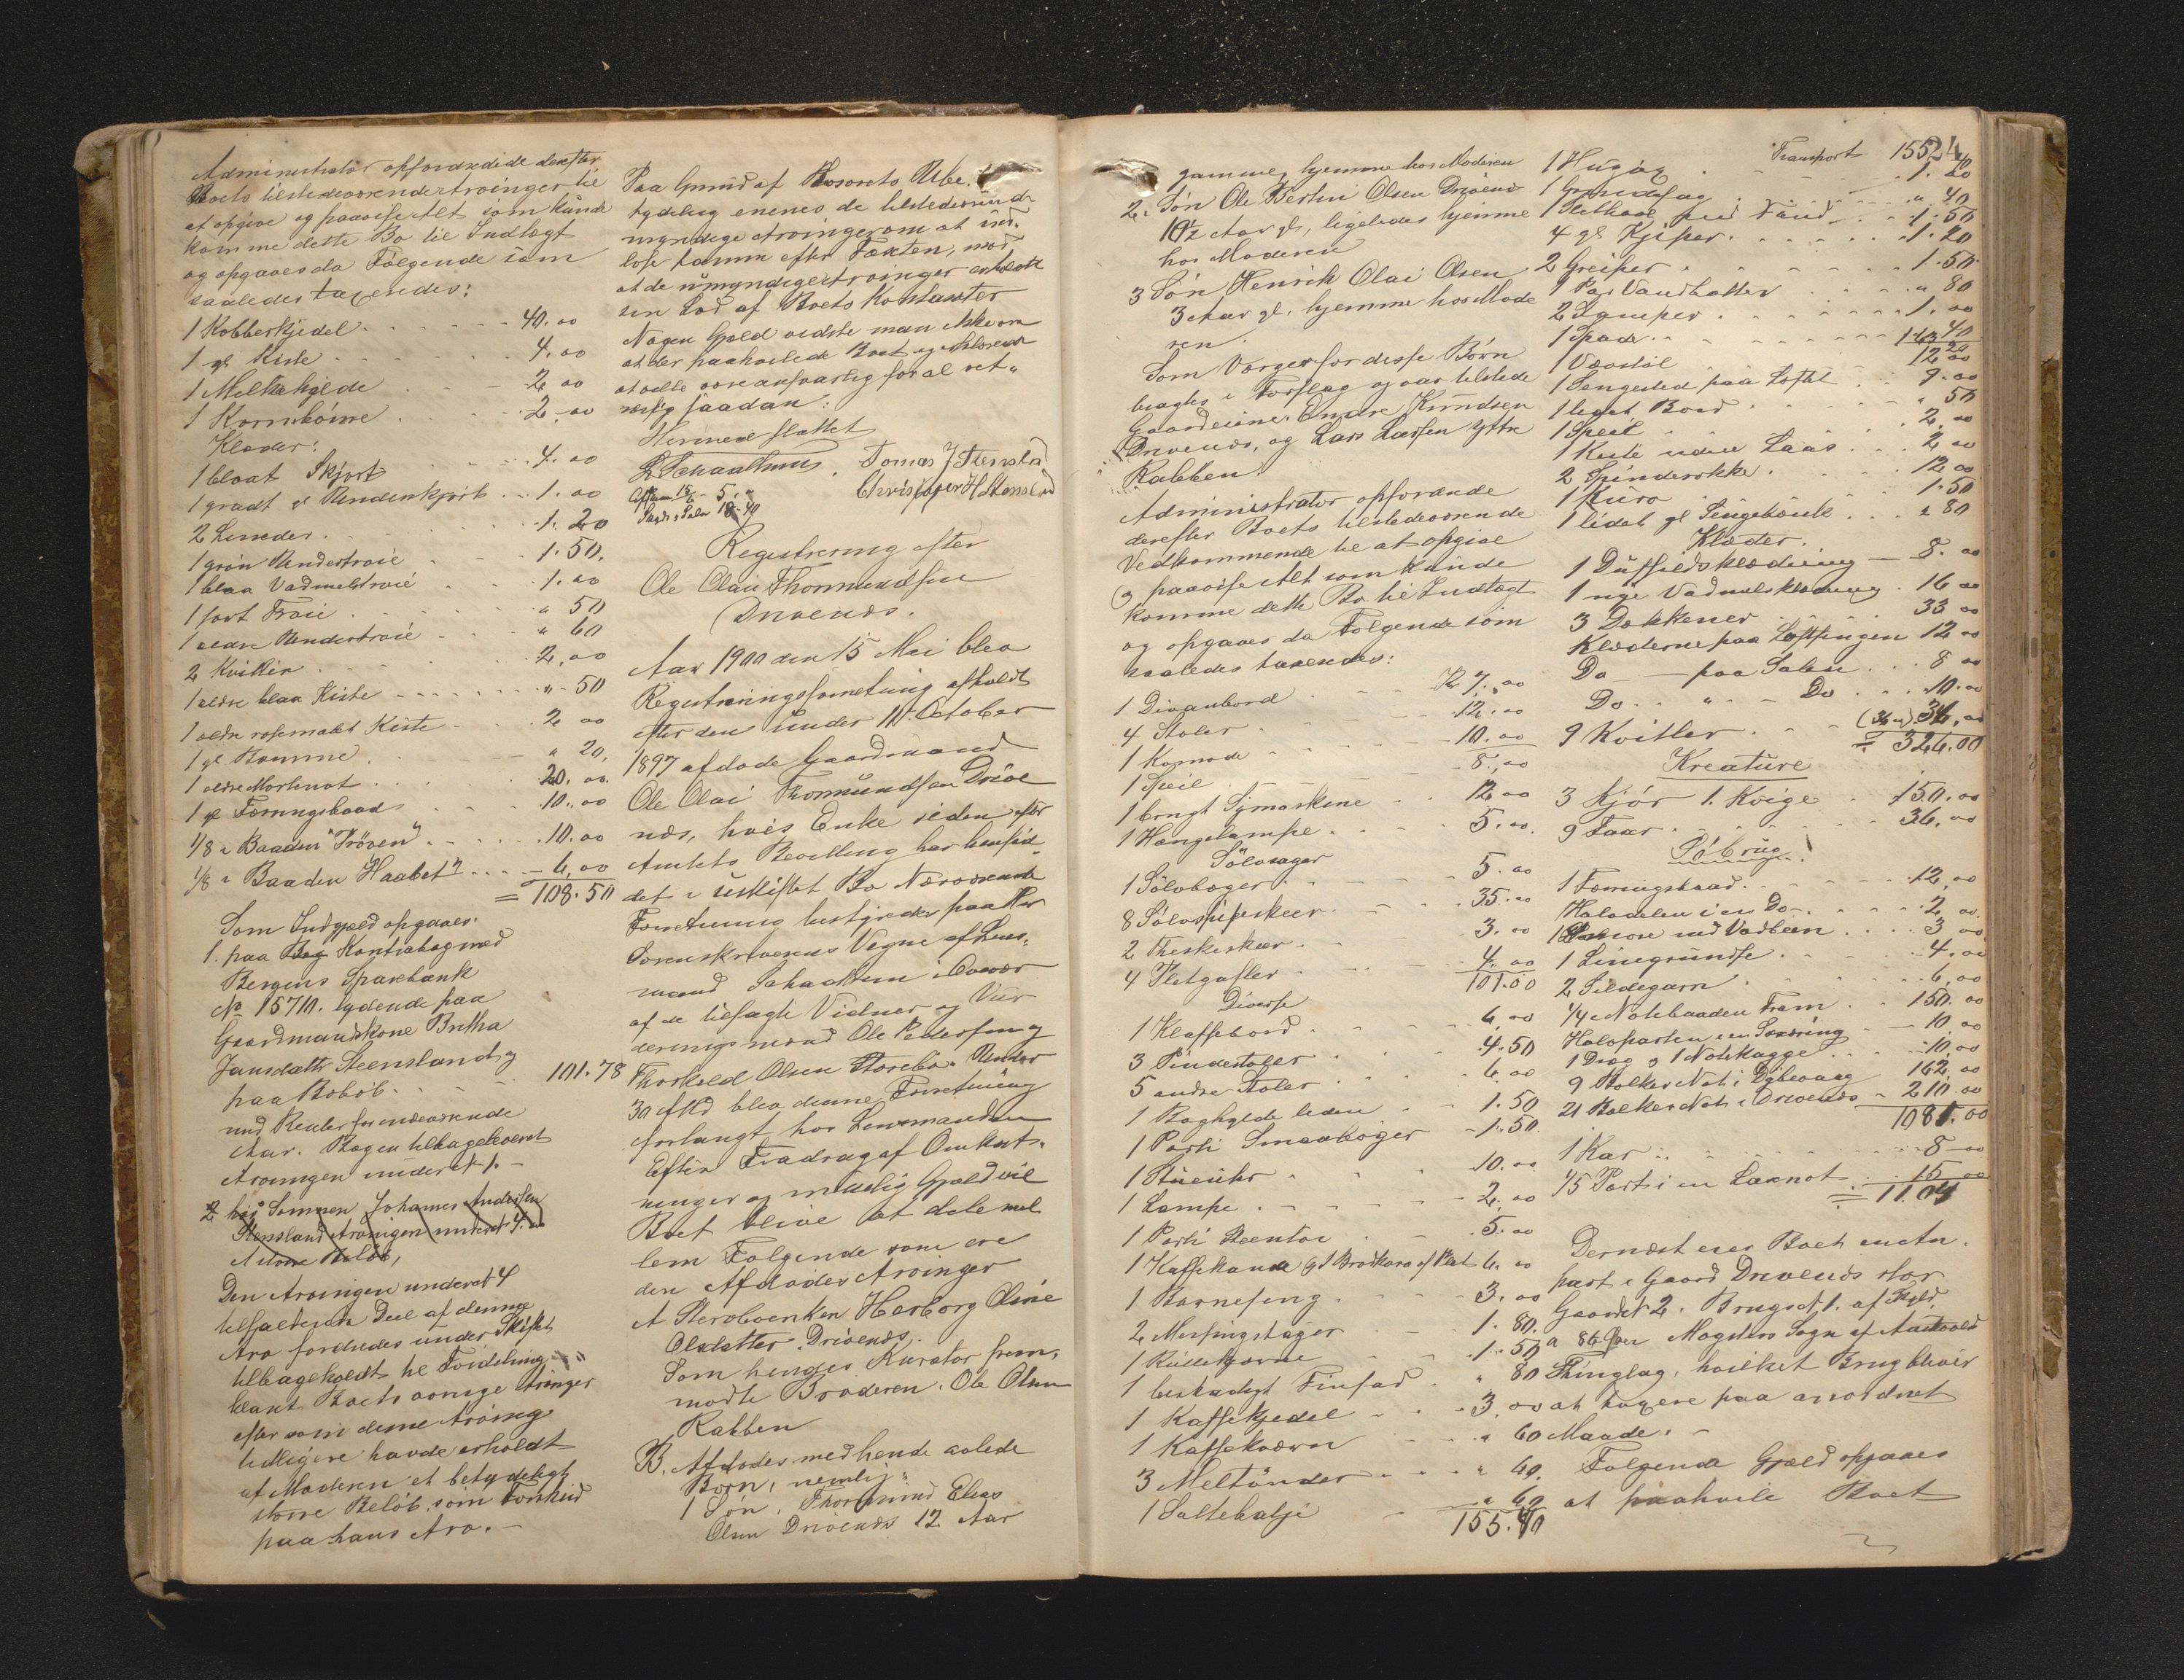 Administrator opfordrede derefter
Boets tilstedeværende Arvinger til
at opgive og paavise Alt som kunde
komme dette Bo til Indtægt
og opgaaes da Følgende som
saaledes taxeredes:
1 Kobberkjedel 40.00
1 gl Kiste 4.00
1 Melkehylde 2.00
1 Kornbömme 2.00
Klæder:
1 blaat Skjørt 4.00
1 graat gl Underskjørt 1.00
2 Linder 1.20
1 grøn Undertroie 1.50.
1 blaa Vadmelstroie 1.00
1 sort Troie " 50
1 ældre Undertroie " 60
2 Kvitler 2.00
1 ældre blaa Kiste " 50
1 ældre rosemalet Kiste 2 00
1 gl Bomme " 20,
1 ældre Mortnot 20.00.
1 gl Færingsbaad 10.00
1/8 i Baaden "Prøven" 10.00
1/8 i Baaden "Haabet" 6,00
= 108.50
Som Indgjæld opgaaes:
1. paa Bog Kontrabog med
Bergens Sparebank
No 15710. lydende paa
Gaardmandskone Britha
Jansdatter Steensland og
paa Beløb 101.78
med Renter for nuværende
Aar. Bogen tilbageleveret
Arvingen under No 1.-
2 hos Sønnen Johannes Andersen
Stensland Arvingen under No 4.
Den Arvingen under No 4
tilfaldende Deel af denne
Arv fordredes under Skiftet
tilbageholdt til Fordeling
blant Boets øvrige Arvinger
efter som denne Arving
tidligere havde erholdt
af Moderen et betydeligt
større Beløb som Forskud
paa hans Arv.-
Paa Grund af Boets Ube-
tydelig enenes de tilstedeværende
myndige Arvinger om at ind-
løse samme efter Taxten, mod
at de umyndige Arvinger erholdt
sin Lod af Boets Kontanter
Nogen Gjæld vidste man ikke om
at der paahvilede Boet
at ville være ansvarlig for al ret-
mæssig saadan:
Hermed sluttet
Schaathun. Tomas J Stensland
Christofer H Stensland
Registrering efter
Ole Olai Thormundsen
Drivenes.
Aar 1900 den 15 Mai blev
Registreringsforretning afholdt
efter den under 11 October
1897 afdøde Gaardmand
Ole Olai Thormundsen Drive
nes, hvis Enke siden efter
Amtets Bevilling har hensid-
det i uskiftet Bo Nærværende
Forretning bestyredes paa Hr
Sorenskriverens Vegne af Lens-
mand Schaathun i Overvær
af de tilsagte Vidner og Vur
deringsmænd Ole Pedersen og
Thorkeld Olsen Storebø. Under
30 f Md blev denne Forretning
forlangt hos Lensmanden
Efter Fradrag af Omkost-
ninger og mulig Gjæld vil
Boet blive at dele mel
lem Følgende som ere
den Afdødes Arvinger
A Sterboenken Herborg Oline
Olsdatter Drivenes.
Som hendes Kurator frem-
mødte Broderen Ole Olsen
Rabben
B. Afdødes med hende avlede
Børn, nemlig:
1 Søn, Thormund Elias
Olsen Drivenes 12 Aar
gamme, hjemme hos Moderen
2. Søn Ole Bertin Olsen Drivenes
10½ Aar gl, ligeledes hjemme
hos Moderen
3 Søn Henrik Olai Olsen
3 Aar gl. hjemme hos Mode
ren.
Som Værger for disse Børn
bragtes i Forslag og var tilstede
Gaardeierne Endre Knudsen
Drivenes, og Lars Larsen Ytre
Rabben.
Administrator opfordrede
derefter Boets tilstedeværende
Vedkommende til at opgive
og paavise Alt som kunde
komme dette Bo til Indtægt
og opgaaes da Følgende som
saaledes taxeredes:
1 Divanbord Kr 7.00
4 Stoler 12.00
1 Komode 10.00
1 Speil 8,00
1 brugt Symaskine 12 00
1 Hængelampe 5.00.
Sölvsager
1 Sölvbæger 5.00
8 Sölvspiseskeer 35.00
2 Theskeer 3.00
4 Pletgafler 4.00
101.00
Diverse
1 Klaffebord 6,00
3 Pindestoler 4.50
5 andre Stoler 6.00
1 Boghylde liden 1.50
1 Parti Smaabøger 1.50
1 Stueuhr 10.00
1 Lampe 2,00
1 Parti Steentøi 5.00
1 Kaffekande og 1 Brødkurv af Plet 6.00
1 Barneseng 3.00
2 Messingstager 1.80.
1 Kullekjærne 1.50
1 beskadigt Tinfad " 80
1 Kaffekjedel 3,00
1 Kaffekværn " 60
3 Meltönder " 60.
1 Saltebalje " 60
155.40
Transport 155.40
1 Hugøx 1.20
1 Grindsag " 40
1 Stetkar 1.50
4 gl Kjiper 1.20
2 Greiper 1.50
1 Par Vandbøtter " 80
1.00
1 Spade " 40
1 Vævstöl 12 00
1 Sengested paa Loftet 9.00
1 lidet Bord " 50
1 Speil 2,00
1 Kiste uden Laas 2 00
2 Spinderokke 12 00
1 Kurv 1.50
1 lidet gl Sengebænk " 80
Klæder.
1 Duffelsklædning 8.00
1 nye Vadmelsklædning 16 00
3 Dækkener 33 00
Klæderne paa Loftsengen 12 00
Do paa Salen 8 00
Do " Do 10.00
9 Kvitler 36,00
= 326.00
Kreature
3 Kjør 1 Kvige 150.00
9 Faar 36.00
Söbrug
1 Færingsbaad 12,00
Halvdelen i en Do 2,00.
3 00
1 Linegrundse 4.00
2 Sildegarn 6,00
1/4 i Notebaaden Fram 150.00
Halvparten i en Sexæring 10,00
1 Dræg og 1 Notekagge 10,00
9 Bolker Not i Dybevaag 162.00
21 Bolker Not i Drivenes 210 00
1081.00
1 Kar 8 00
1/5 Part i en Laxnot 15 00
= 1104
Dernæst eier Boet en An-
part i Gaard Drivenes stor
Gaardsno 2. Brugsno 1. af Skyld
a 86 Øre Møgsters Sogn af Austevold
Thinglag, hvilket Brug bliver
at taxere paa anordnet
Maade.-
Følgende Gjæld opgaaes
at paahvile Boet